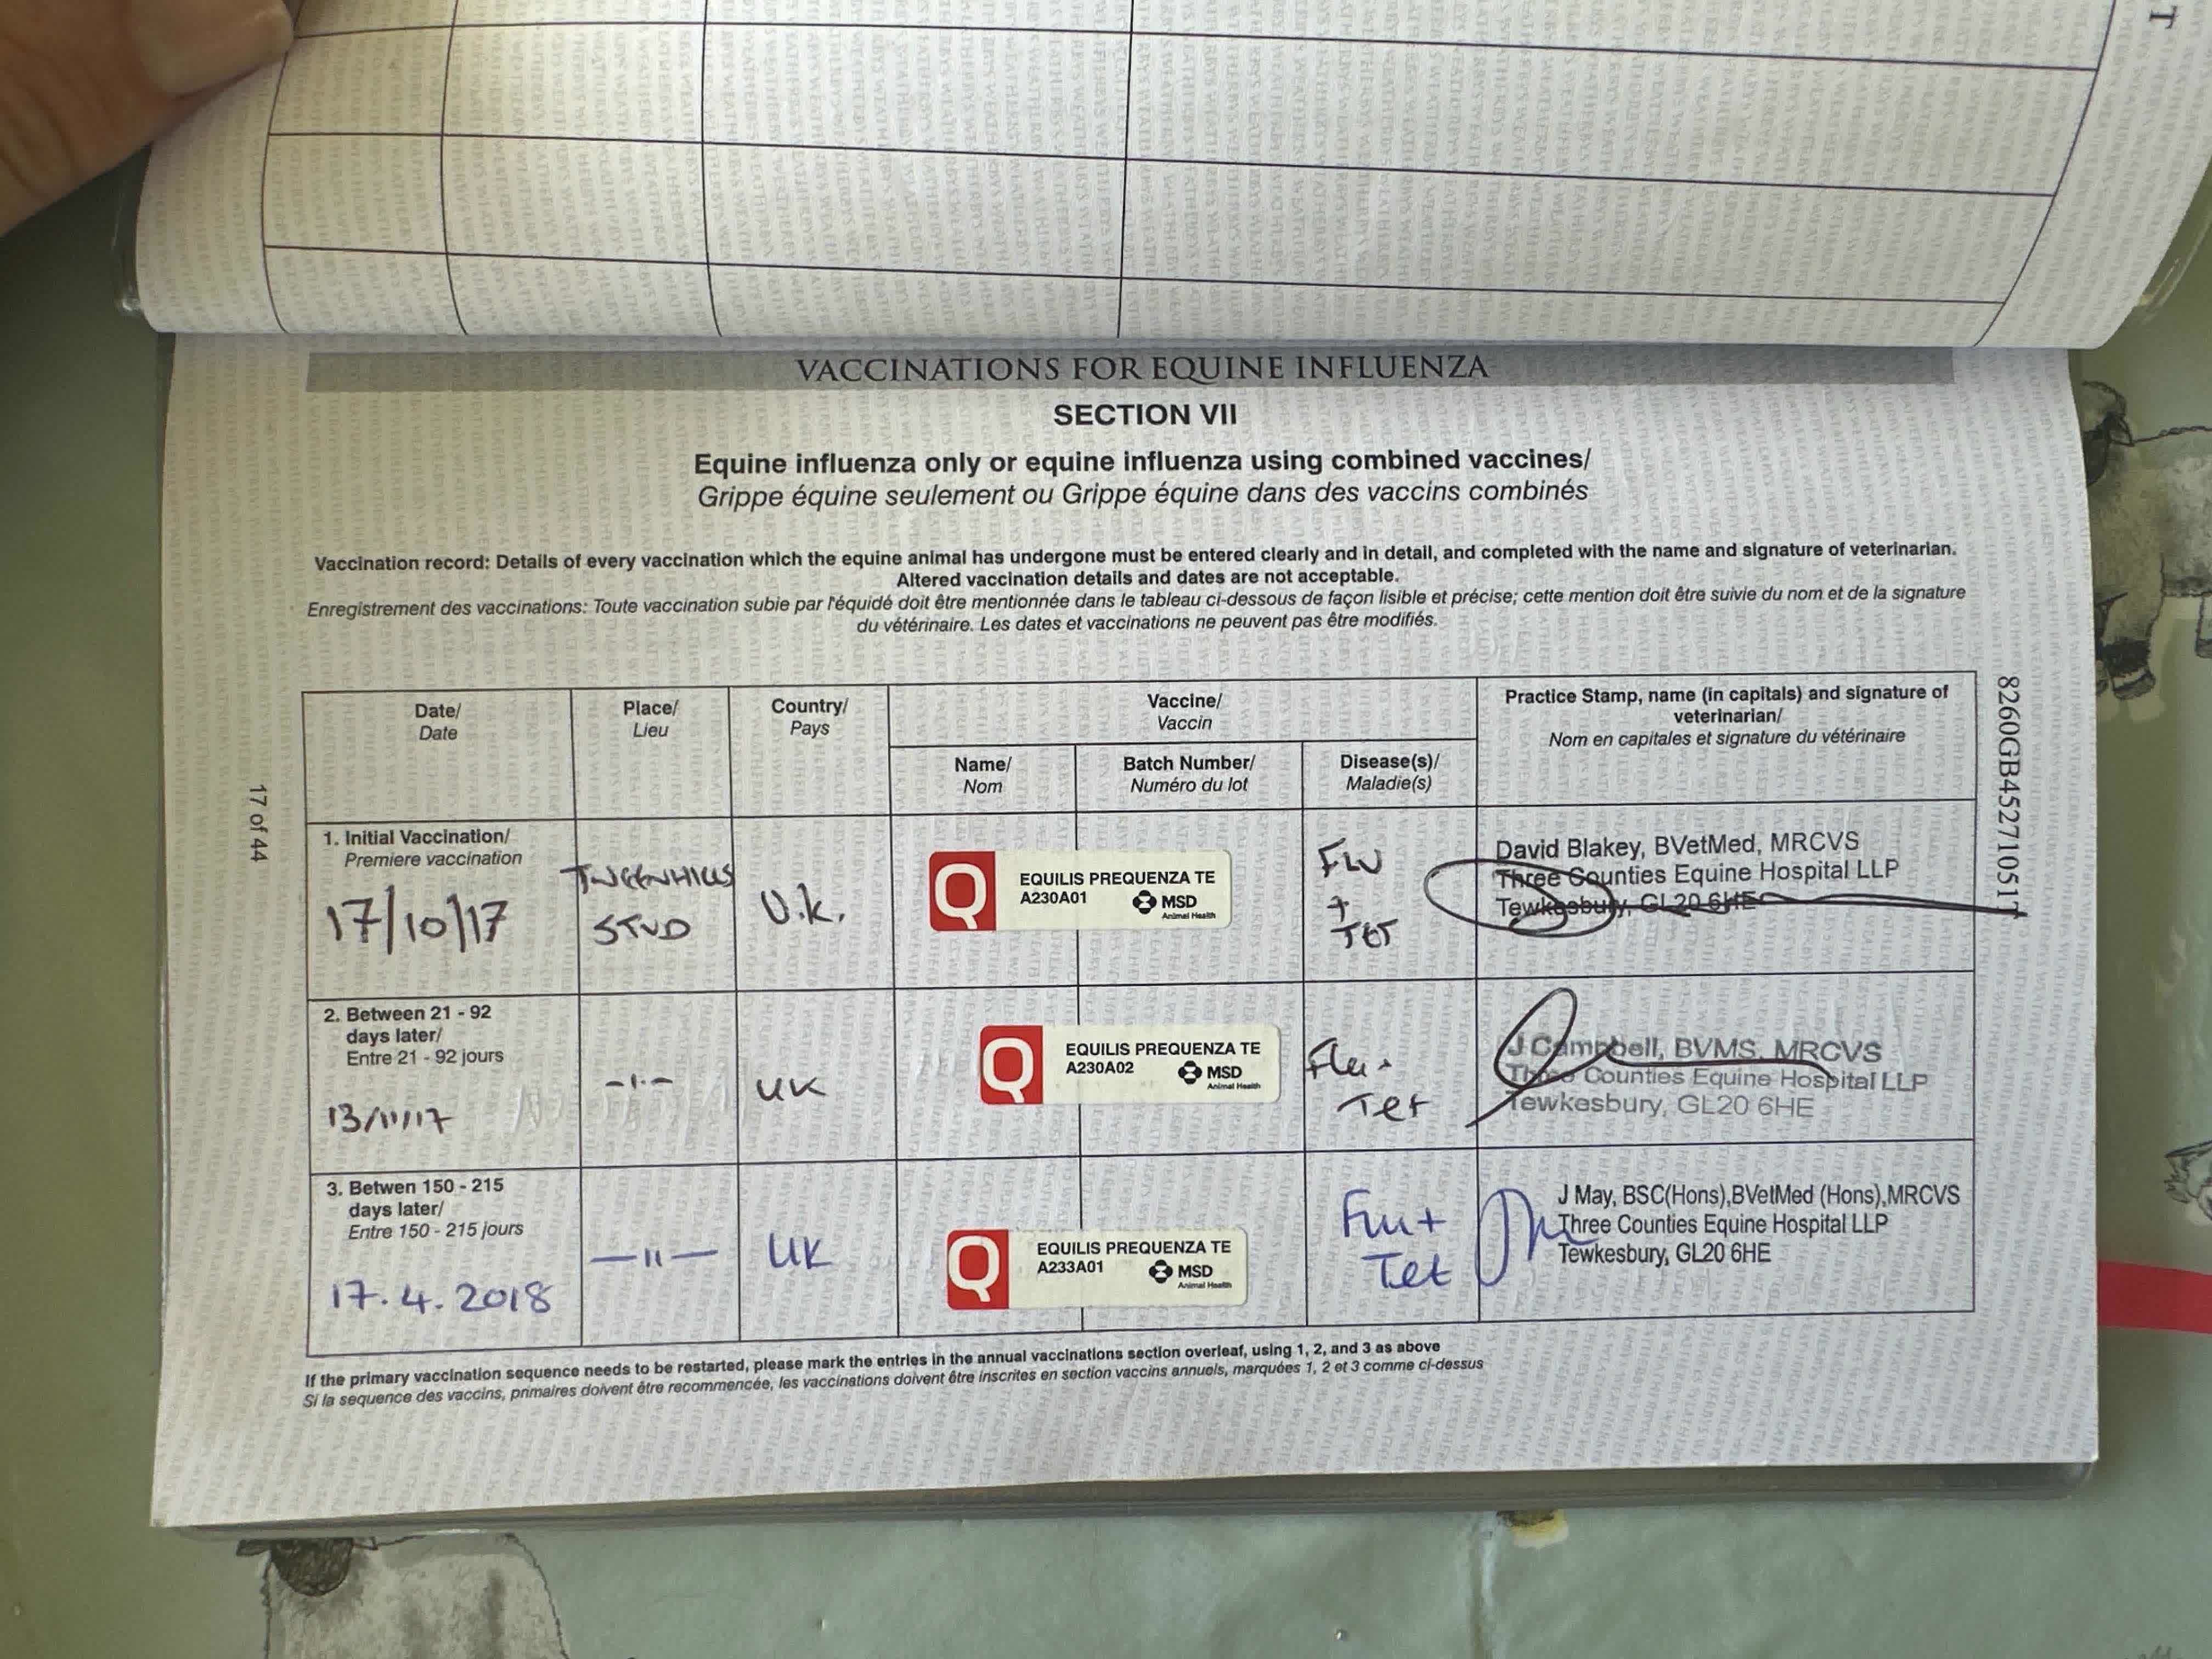 T
VACCINATIONS FOR EQUINE INFLUENZA
SECTION VII
Equine influenza only or equine influenza using combined vaccines/
Grippe équine seulement ou Grippe équine dans des vaccins combinés
Vaccination record: Details of every vaccination which the equine animal has undergone must be entered clearly and in detail, and completed with the name and signature of veterinarian.
Altered vaccination details and dates are not acceptable.
Enregistrement des vaccinations: Toute vaccination subie par l'équidé doit être mentionnée dans le tableau ci-dessous de façon lisible et précise; cette mention doit être suivie du nom et de la signature
du vétérinaire. Les dates et vaccinations ne peuvent pas être modifiés.
Date/
Date
Place/
Lieu
Country/
Pays
Vaccine/
Vaccin
Name/
Nom
Batch Number/
Numéro du lot
Disease(s)/
Maladie(s)
Practice Stamp, name (in capitals) and signature of
veterinarian/
Nom en capitales et signature du vétérinaire
1. Initial Vaccination/
Premiere vaccination
17/10/17
STUD
U.K.
Q
EQUILIS PREQUENZA TE
A230A01
MSD
Animal Health
FLU
+
TET
David Blakey, BVetMed, MRCVS
Three Counties Equine Hospital LLP
Tewkesbury, GL20 6HE
2. Between 21 - 92
days later/
Entre 21 - 92 jours
13/11/17
-1·-
UK
Q
EQUILIS PREQUENZA TE
A230A02
MSD
Animal Health
Flu ·
Tet
J Campbell, BVMS, MRCVS
Three Counties Equine Hospital LLP
Tewkesbury, GL20 6HE
3. Betwen 150 - 215
days later/
Entre 150 - 215 jours
17.4.2018
—11—
UK
Q
EQUILIS PREQUENZA TE
A233A01
MSD
Animal Health
Flu +
Tet
J May, BSC(Hons),BVetMed (Hons),MRCVS
Three Counties Equine Hospital LLP
Tewkesbury, GL20 6HE
If the primary vaccination sequence needs to be restarted, please mark the entries in the annual vaccinations section overleaf, using 1, 2, and 3 as above
Si la sequence des vaccins, primaires doivent être recommencée, les vaccinations doivent être inscrites en section vaccins annuels, marquées 1, 2 et 3 comme ci-dessus
17 of 44
8260GB45271051T